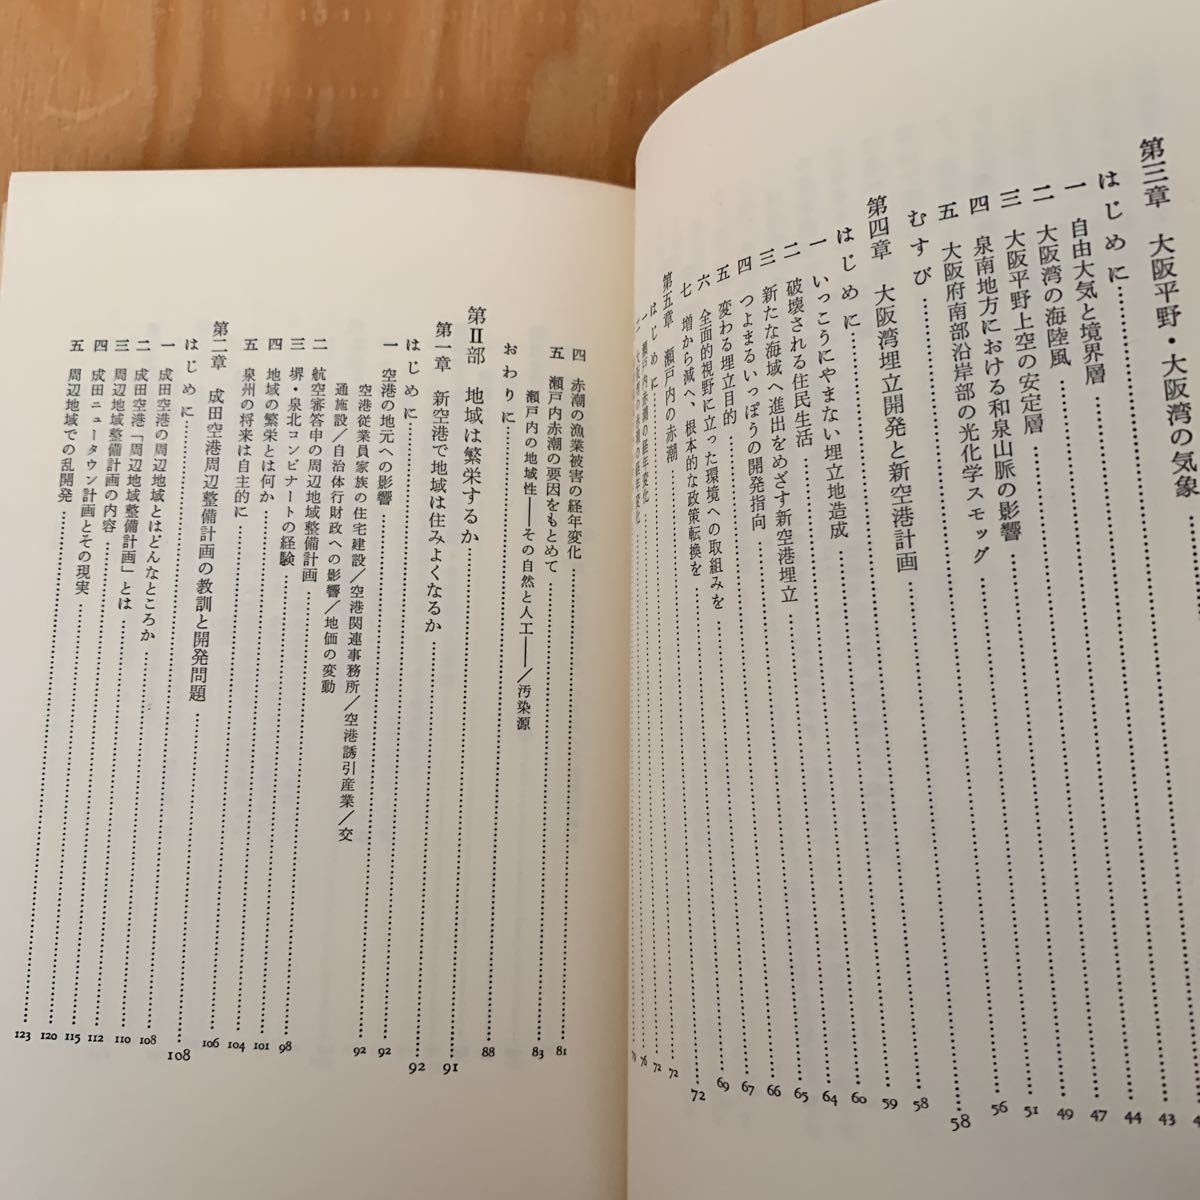 第三章 大阪平野・大阪湾の気象
はじめに
一 自由大気と境界層 43
二 大阪湾の海陸風 44
三 大阪平野上空の安定層 47
四 泉南地方における和泉山脈の影響 49
五 大阪府南部沿岸部の光化学スモッグ 51
むすび 56
第四章 大阪湾埋立開発と新空港計画 58
はじめに 58
一 いっこうにやまない埋立地造成 59
二 破壊される住民生活 60
三 新たな海域へ進出をめざす新空港埋立 64
四 つよまるいっぽうの開発指向 65
五 変わる埋立目的 66
六 全面的視野に立った環境への取組みを 67
七 増から減へ、根本的な政策転換を 69
第五章 瀬戸内の赤潮 72
はじめに 72
一 瀬戸内赤潮の経年変化 72
二 の経年変化 76
79
四 赤潮の漁業被害の経年変化 81
五 瀬戸内赤潮の要因をもとめて 83
瀬戸内の地域性――その自然と人工――/汚染源
おわりに 88
第II部 地域は繁栄するか 91
第一章 新空港で地域は住みよくなるか 92
はじめに 92
一 空港の地元への影響 92
空港従業員家族の住宅建設/空港関連事務所/空港誘引産業/交
通施設/自治体行財政への影響/地価の変動
二 航空審答申の周辺地域整備計画 98
三 堺・泉北コンビナートの経験 101
四 地域の繁栄とは何か 104
五 泉州の将来は自主的に 106
第二章 成田空港周辺整備計画の教訓と開発問題 108
はじめに 108
一 成田空港の周辺地域とはどんなところか 110
二 成田空港「周辺地域整備計画」とは 112
三 周辺地域整備計画の内容 115
四 成田ニュータウン計画とその現実 120
五 周辺地域での乱開発 123